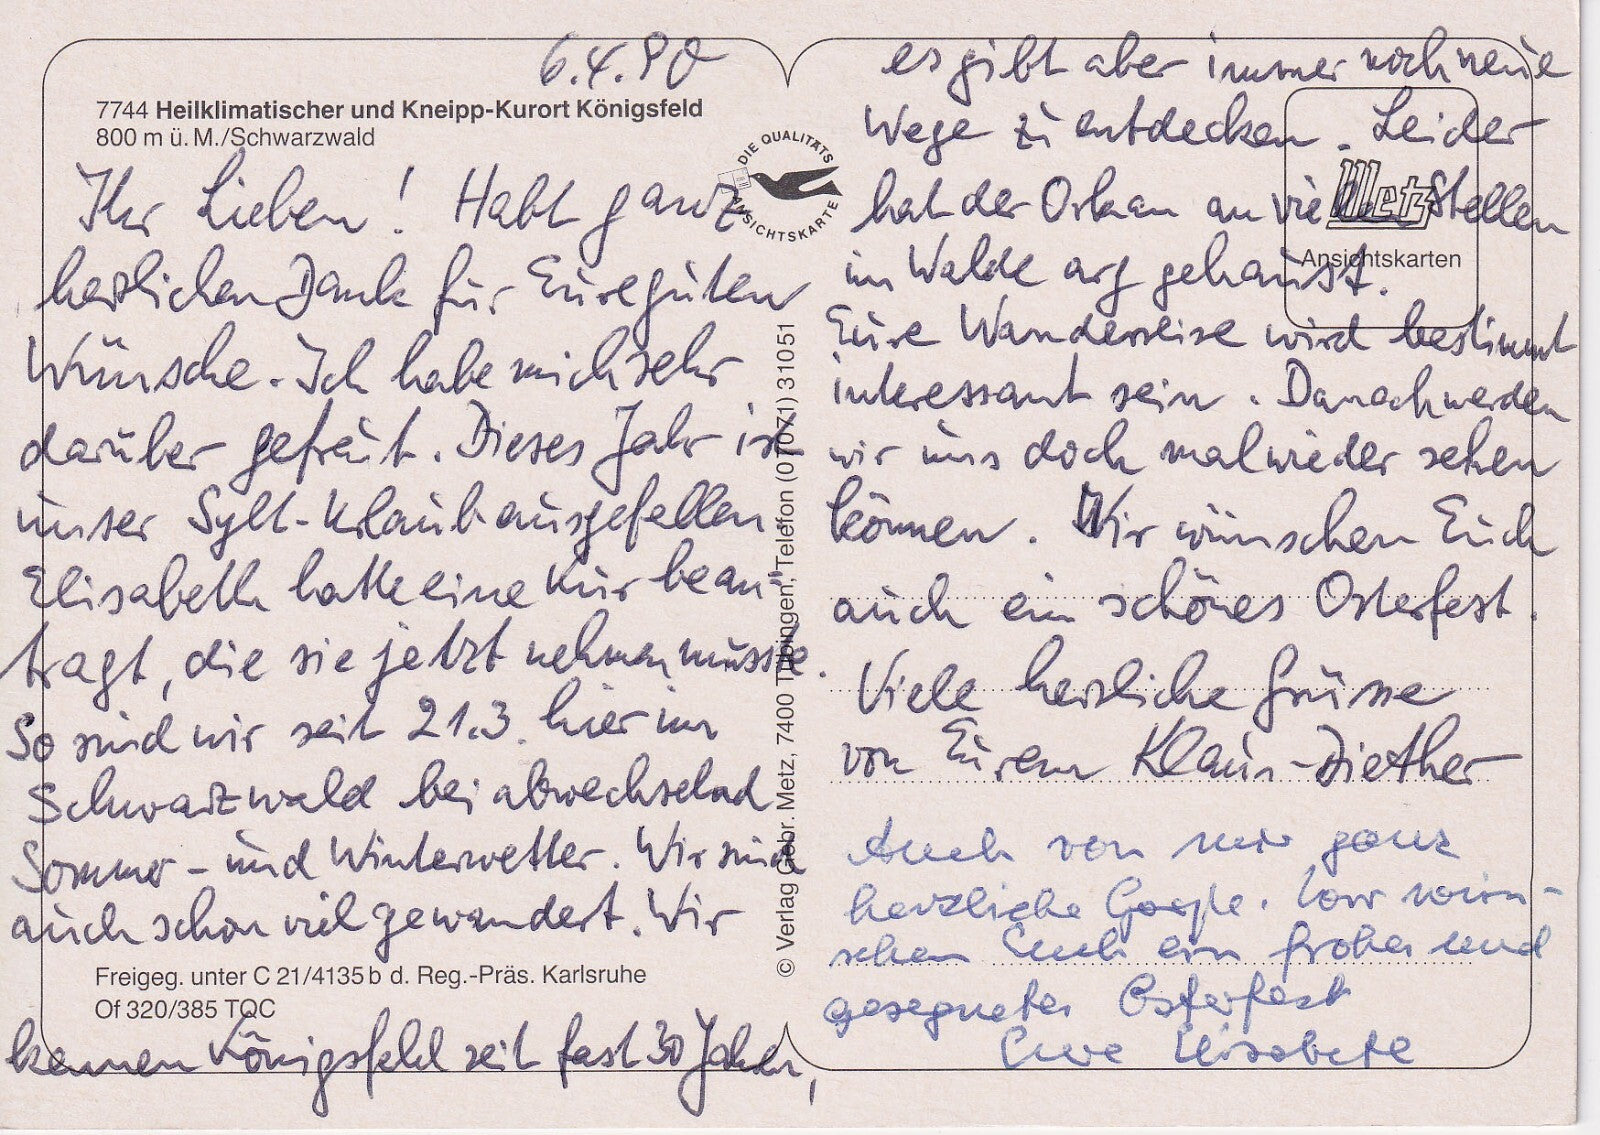 6.4.90
7744 Heilklimatischer und Kneipp-Kurort Königsfeld
800 m ü. M./Schwarzwald
DIE QUALITÄTS
ANSICHTSKARTE
Ihr Lieben! Habt ganz
herzlichen Dank für Eure guten
Wünsche. Ich habe mich sehr
darüber gefreut. Dieses Jahr ist
unser Sylt-Urlaub ausgefallen
Elisabeth hatte eine Kur bean=
tragt, die sie jetzt nehmen musste.
So sind wir seit 21.3. hier im
Schwarzwald bei abwechselnd
Sommer- und Winterwetter. Wir sind
auch schon viel gewandert. Wir
Freigeg. unter C 21/4135 b d. Reg.-Präs. Karlsruhe
Of 320/385 TQC
kennen Königsfeld seit fast 30 Jahren,
© Verlag Gebr. Metz, 7400 Tübingen, Telefon (07071) 31051
es gibt aber immer noch neue
Wege zu entdecken. Leider
hat der Orkan an vielen Stellen
im Walde arg gehaust.
Metz
Ansichtskarten
Eure Wanderreise wird bestimmt
interessant sein. Danach werden
wir uns doch mal wieder sehen
können. Wir wünschen Euch
auch ein schönes Osterfest.
Viele herzliche Grüsse
von Eurem Klaus-Diether
Auch von mir ganz
herzliche Grüße. Wir wün-
schen Euch ein frohes und
gesegnetes Osterfest
Eure Elisabeth